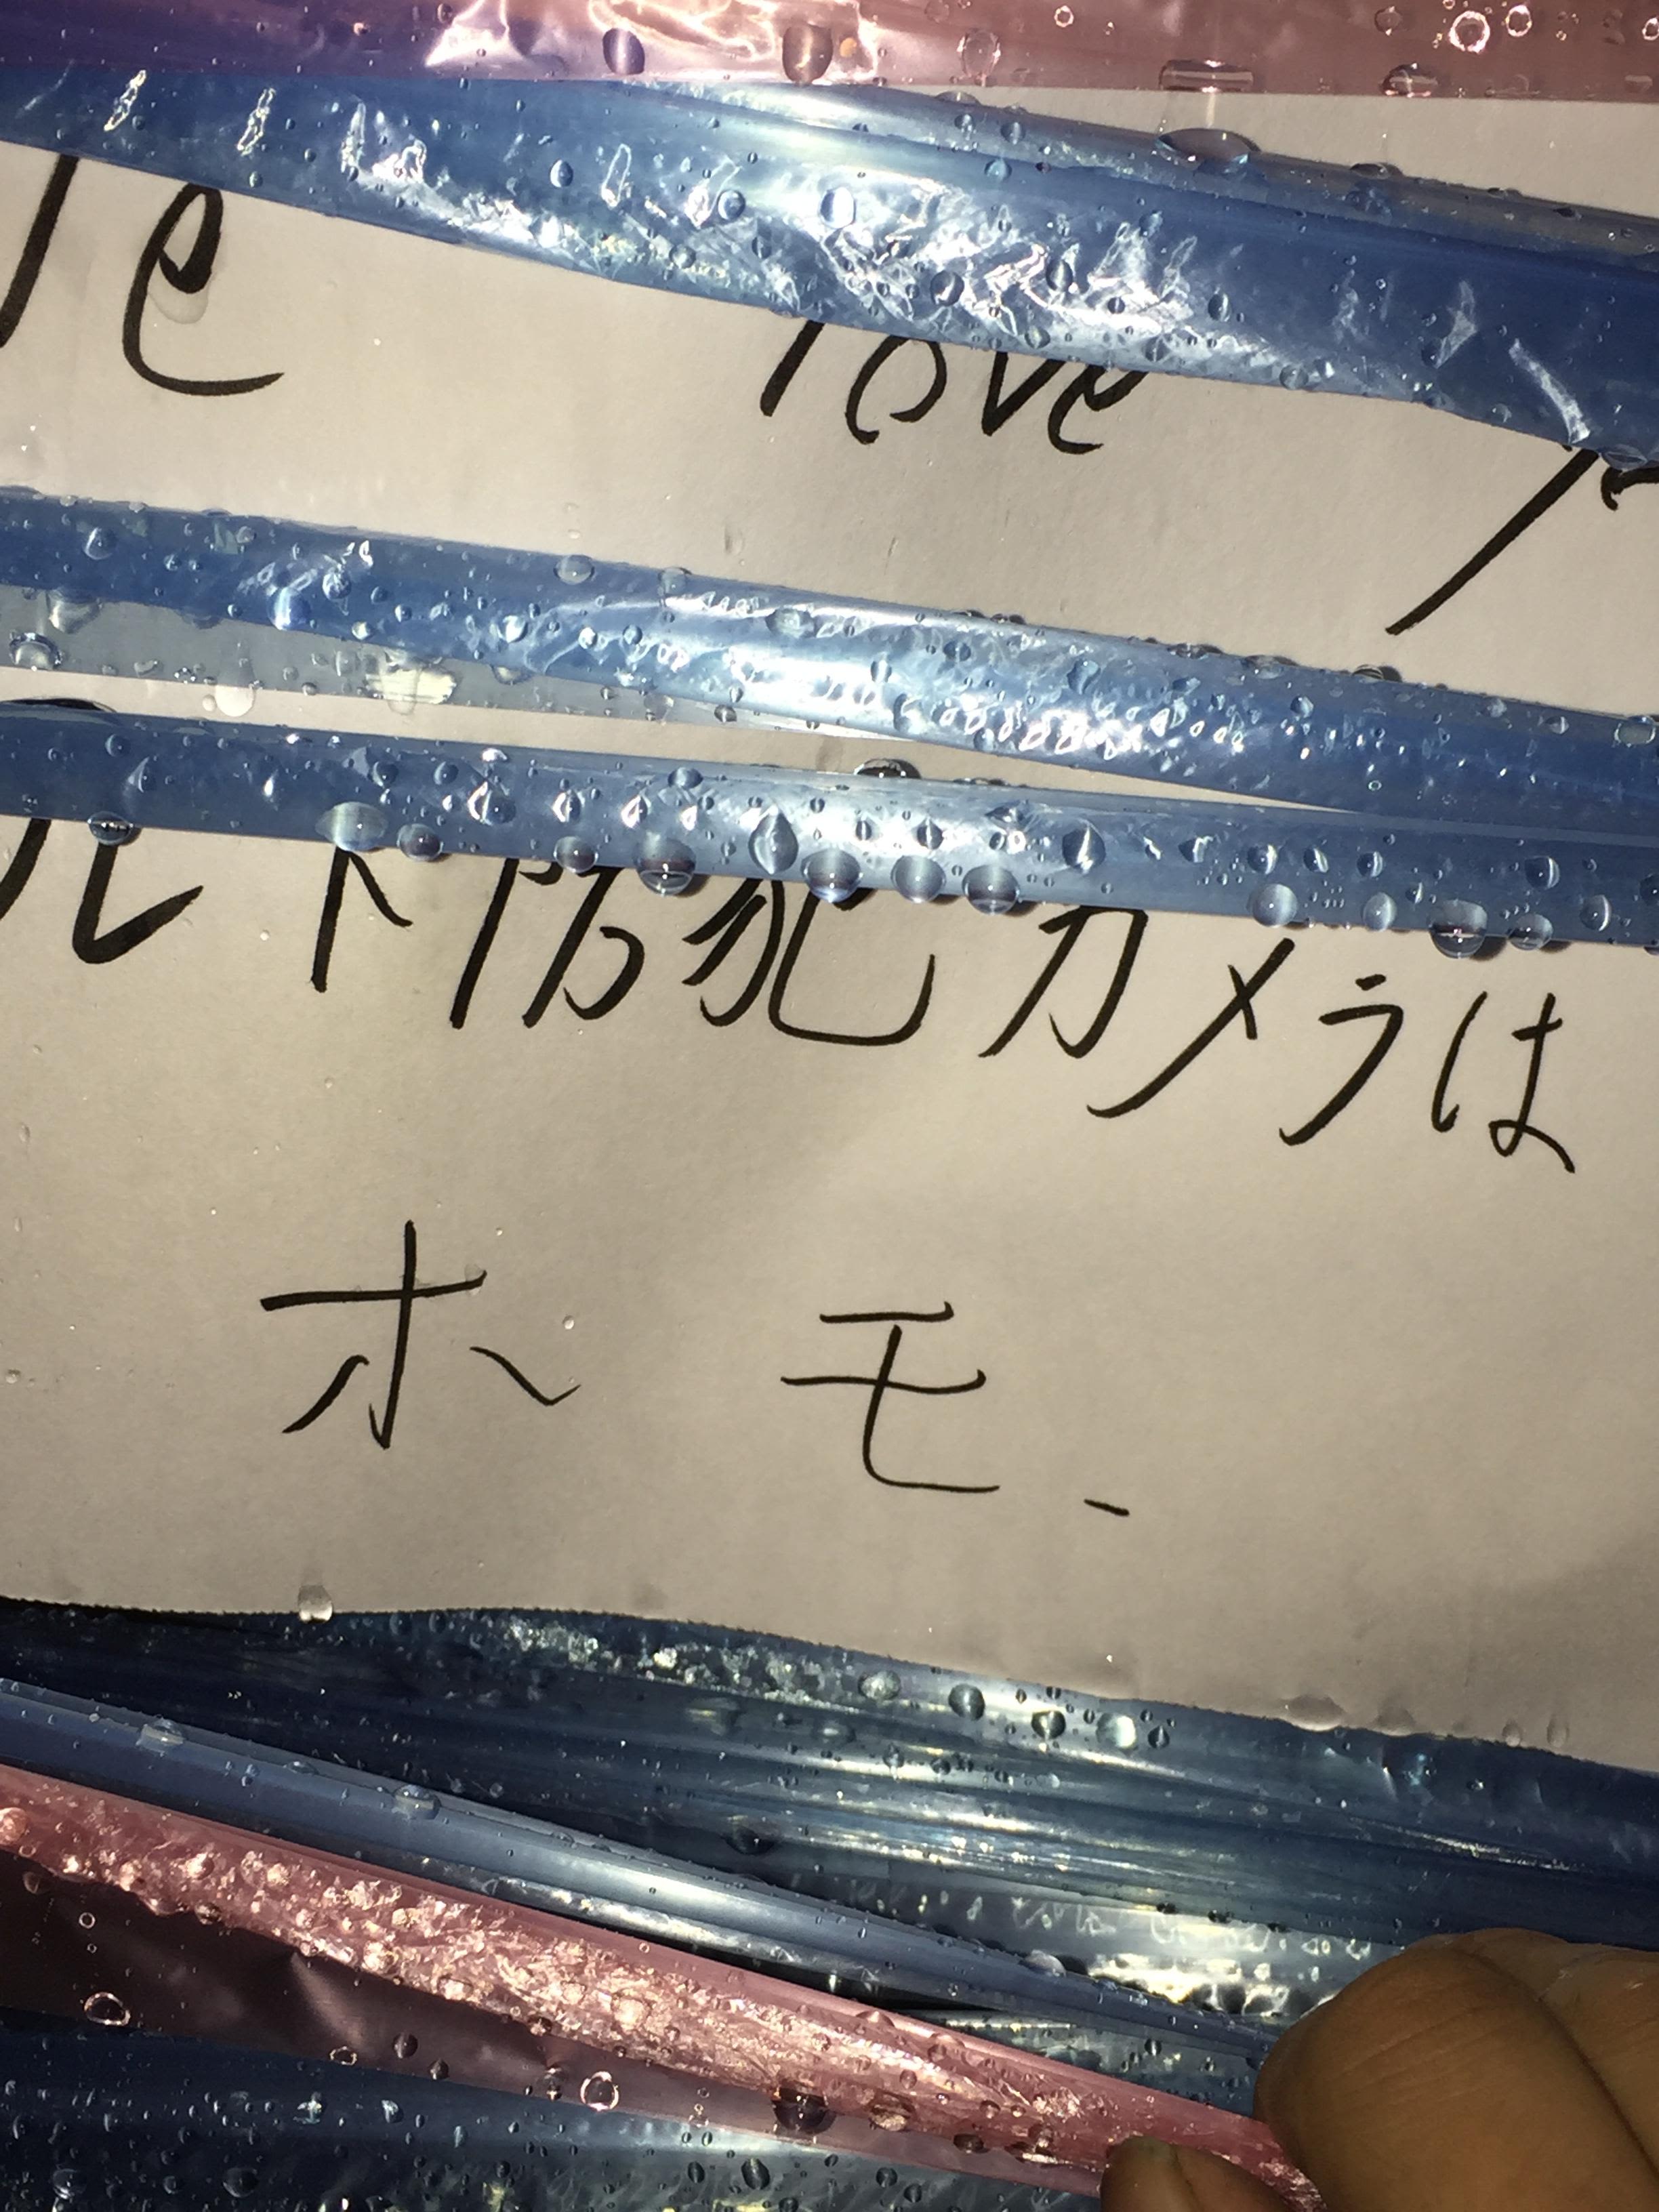 le love
ルト防犯カメラは
ホモ、